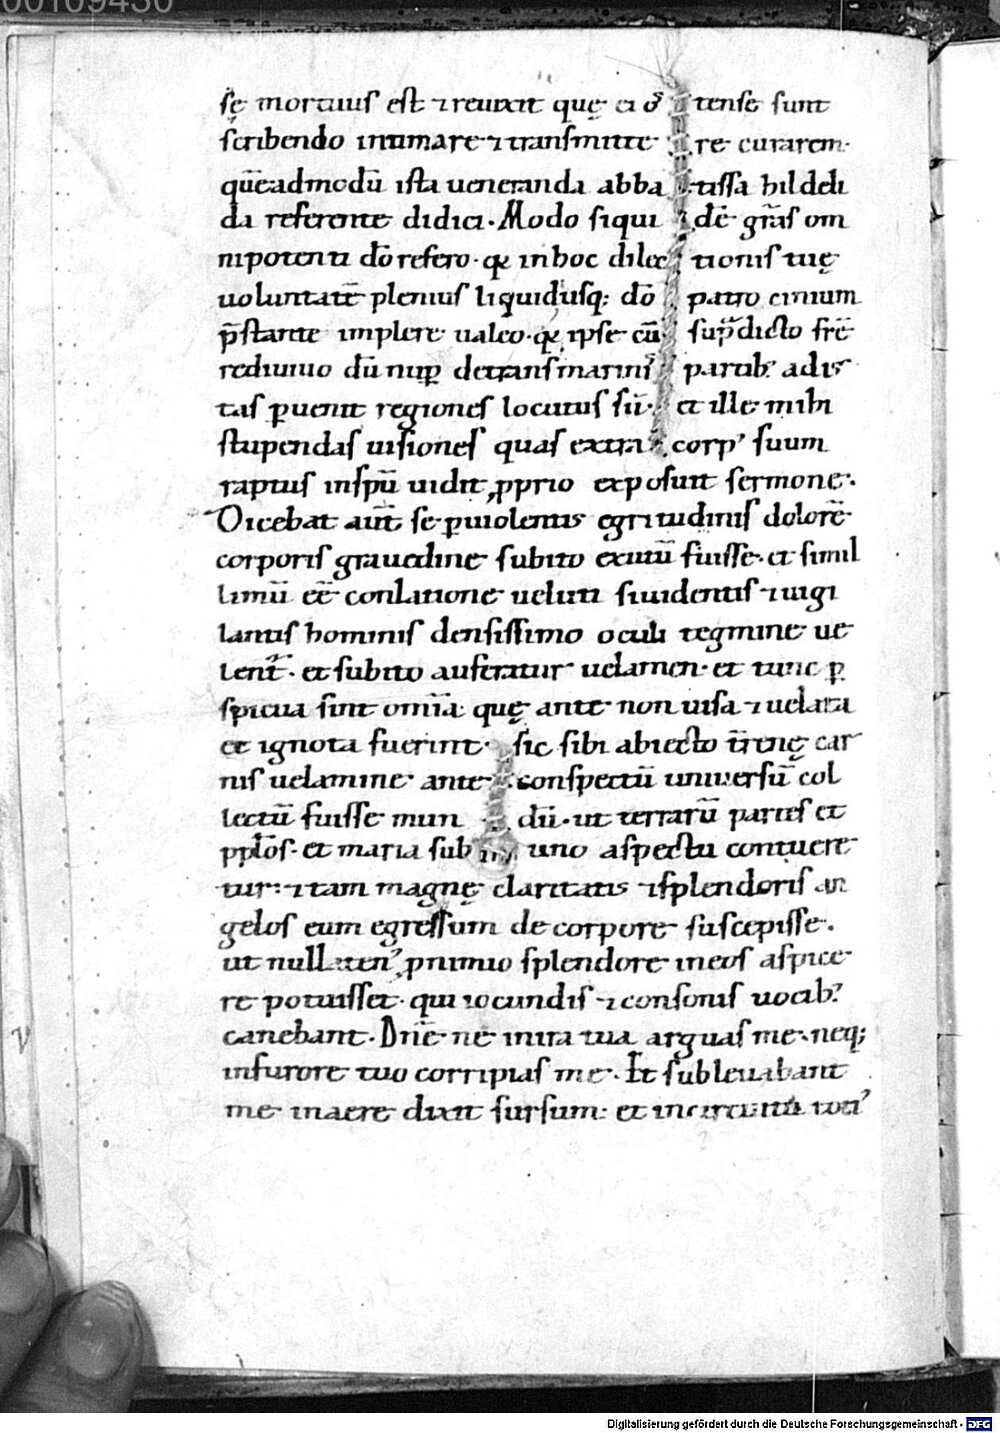 00109430
sę mortuus est ⁊ reuixit quę ei oſtense sunt
scribendo intimare ⁊ transmittere curarem·
quēadmodū ista ueneranda abbatissa hildeli
da referente didici· Modo siquidē grās om
nipotenti dō refero· qđ inhoc dilectionis tuę
uoluntatē plenius liquidusq; dō patrocinium
p̄stante implere ualeo· qđ ipse cū sup̄dicto frē
rediuiuo dū nup̱ detransmarinis partib; adis
tas p̱uenit regiones locutus sū· et ille mihi
stupendas uisiones quas extra corp' suum
raptus inspū uidit, p̱prio exposuit sermone·
Dicebat aūt se p̱uiolentis egritudinis dolorē
corporis grauedine subito exutū fuisse· et simil
limū eē conlatione ueluti siuidentis ⁊ uigi
lantis hominis densissimo oculi tegmine ue
lent'· et subito auferatur uelamen· et tunc p̱
spicua sint omīa quę ante non uisa ⁊ uelata
et ignota fuerint· sic sibi abiecto t̄renę car
nis uelamine ante conspectū uniuersū col
lectū fuisse mundū· ut terrarū partes et
pplōs· et maria sub uno aspectu contuere
tur: ⁊ tam magnę claritatis ⁊ splendoris an
gelos eum egressum de corpore suscepisse·
ut nullaten' p̱nimio splendore ineos aspice
re potuisset· qui iocundis ⁊ consonis uocib;
canebant· Dnē ne inira tua arguas me· neq;
infurore tuo corripias me· Et subleuabant
me inaere dixit sursum: et incircuitu toti'
Digitalisierung gefördert durch die Deutsche Forschungsgemeinschaft - DFG